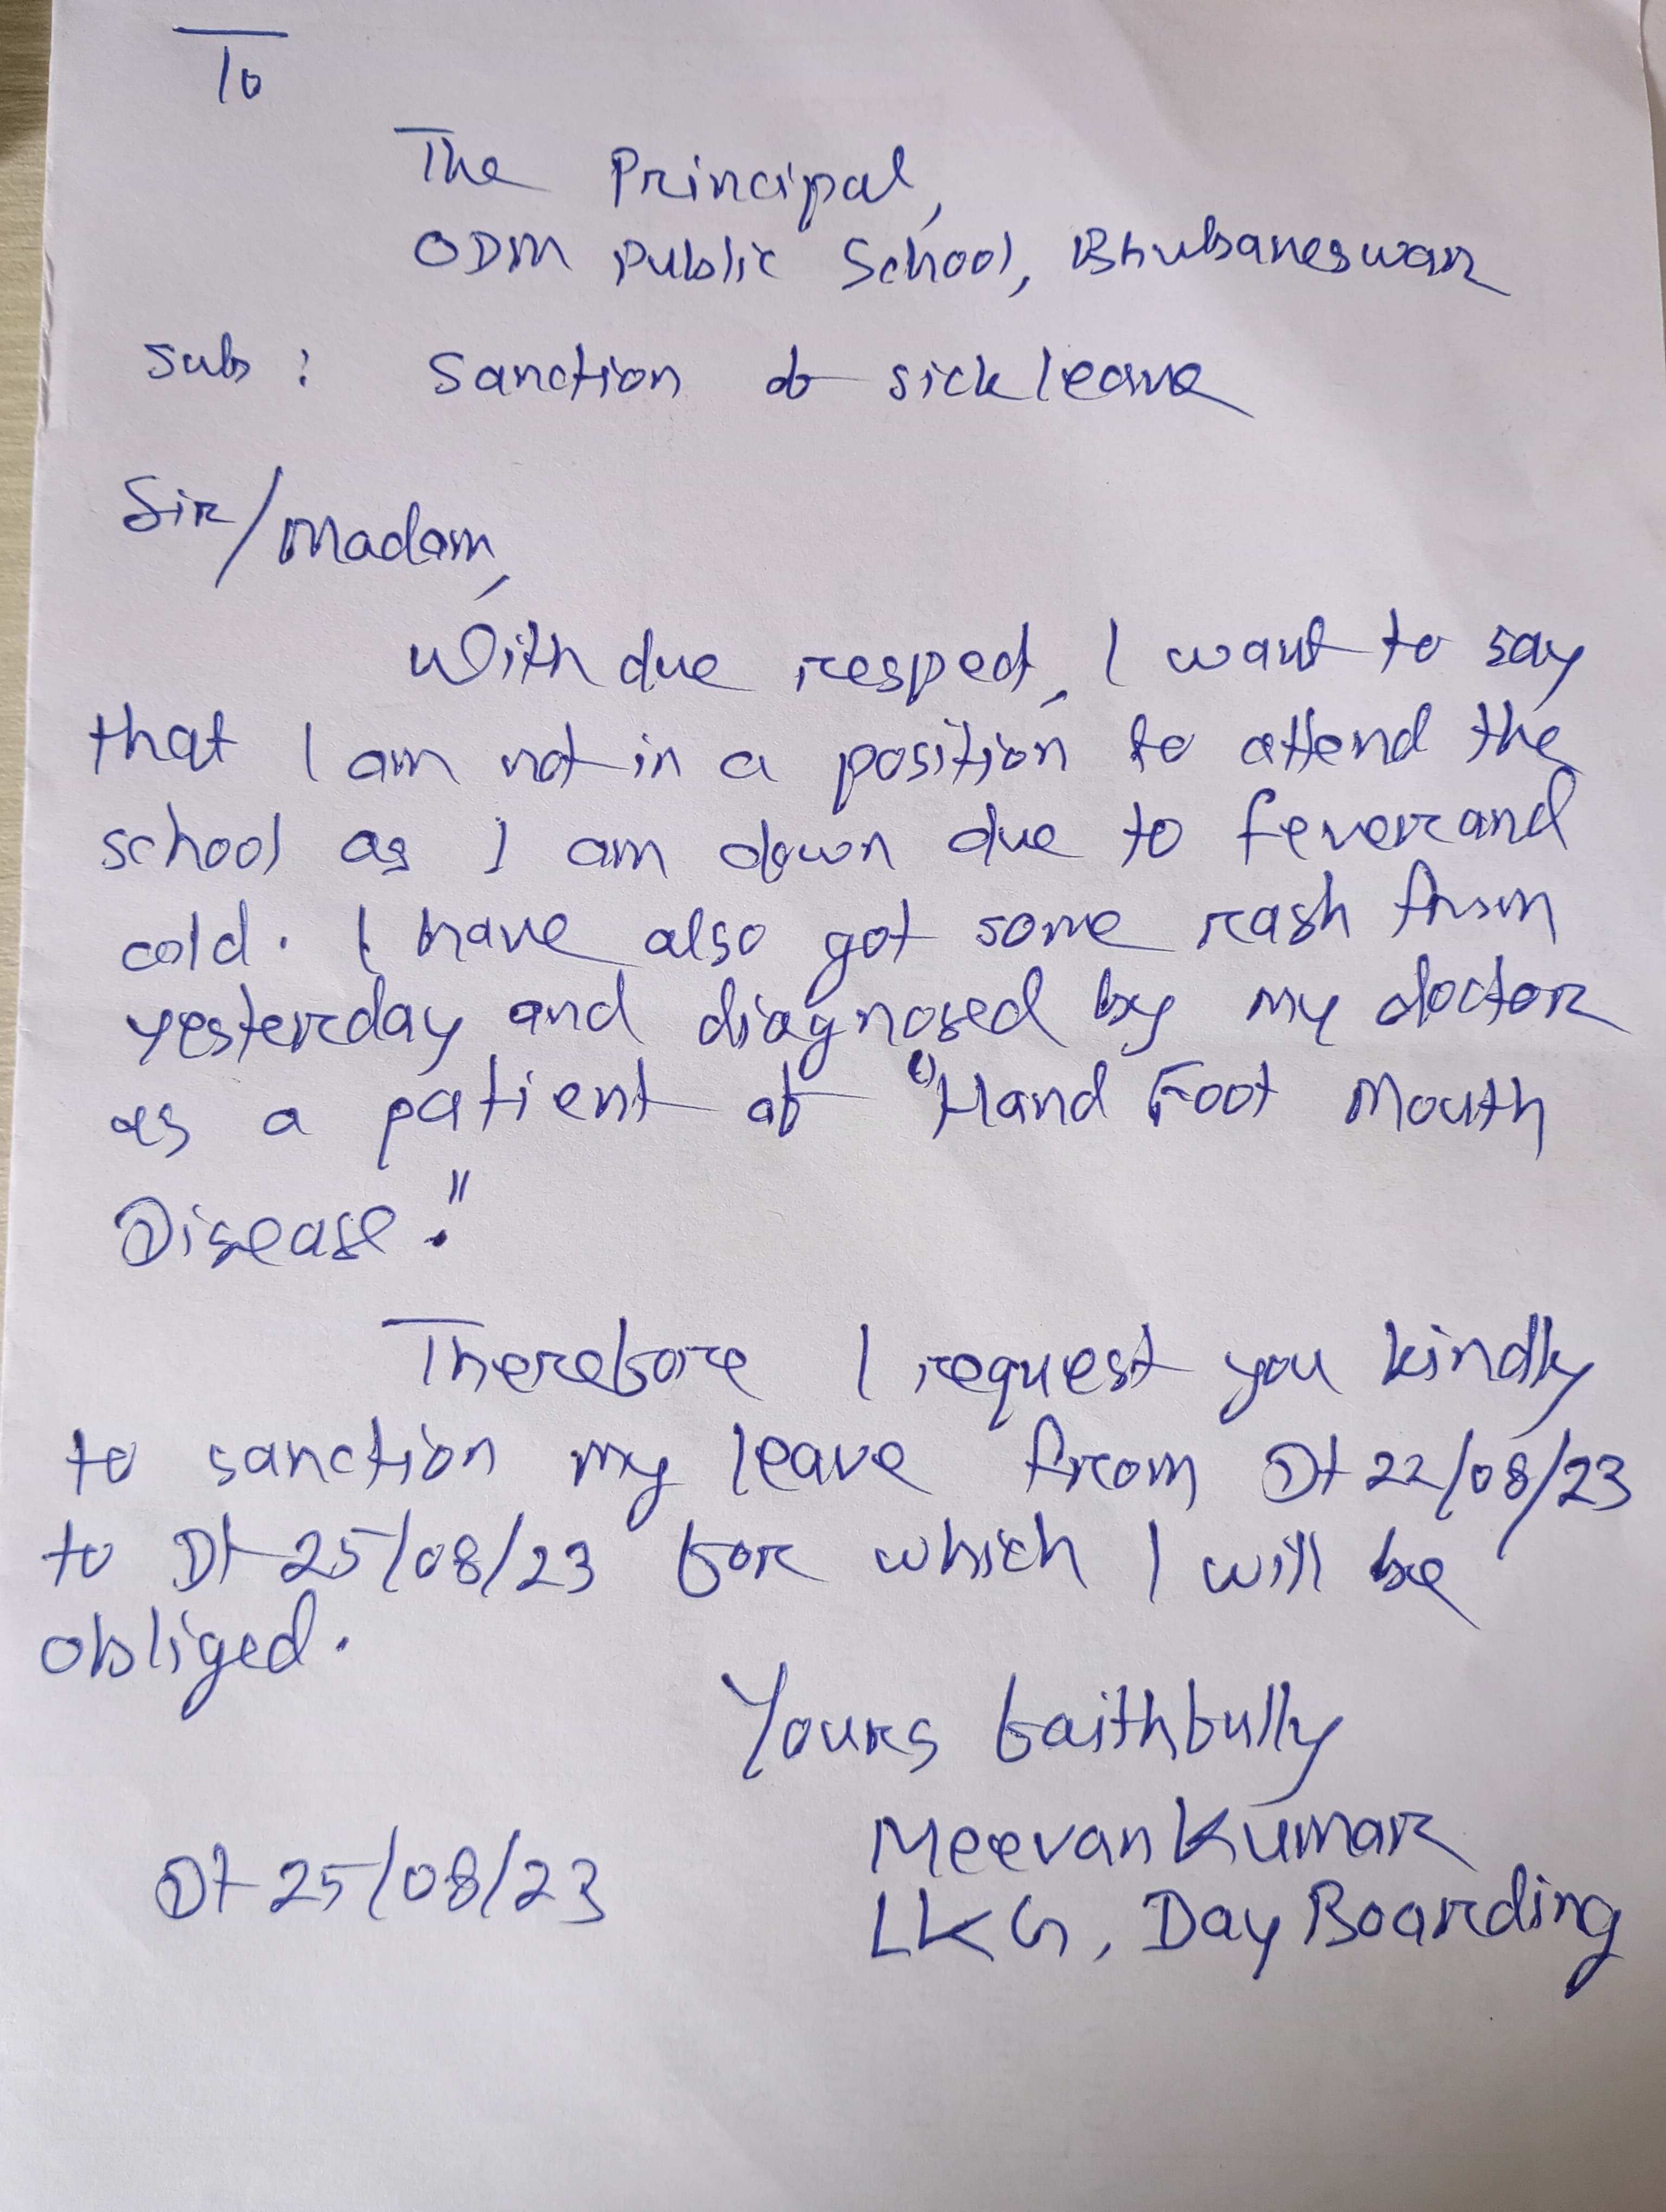 To
The Principal,
ODM Public School, Bhubaneswar
Sub: Sanction of sick leave
Sir/Madam,
With due respect, I want to say
that I am not in a position to attend the
school as I am down due to fever and
cold. I have also got some rash from
yesterday and diagnosed by my doctor
as a patient of "Hand Foot Mouth
Disease."
Therefore I request you kindly
to sanction my leave from Dt 22/08/23
to Dt 25/08/23 for which I will be
obliged.
Yours faithfully
Meevan Kumar
Dt 25/08/23
LKG, Day Boarding